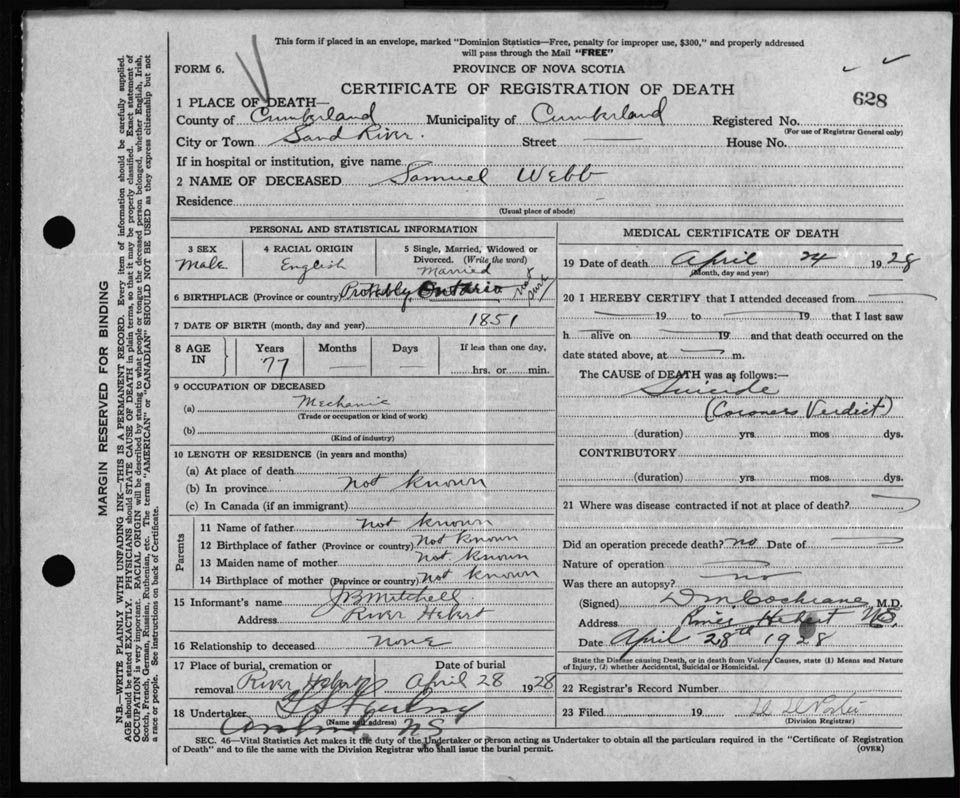 This form if placed in an envelope, marked "Dominion Statistics—Free, penalty for improper use, $300," and properly addressed
will pass through the Mail "FREE"
FORM 6.
PROVINCE OF NOVA SCOTIA
CERTIFICATE OF REGISTRATION OF DEATH
628
1 PLACE OF DEATH—
County of Cumberland Municipality of Cumberland Registered No.
(For use of Registrar General only)
City or Town Sand River. Street House No.
If in hospital or institution, give name
2 NAME OF DECEASED Samuel Webb
Residence
(Usual place of abode)
PERSONAL AND STATISTICAL INFORMATION
3 SEX 4 RACIAL ORIGIN 5 Single, Married, Widowed or
Divorced. (Write the word)
Male English Married
6 BIRTHPLACE (Province or country) Probably Ontario not sure
7 DATE OF BIRTH (month, day and year) 1851
8 AGE IN Years Months Days If less than one day,
77 hrs. or min.
9 OCCUPATION OF DECEASED
(a) Mechanic
(Trade or occupation or kind of work)
(b)
(Kind of industry)
10 LENGTH OF RESIDENCE (in years and months)
(a) At place of death
(b) In province not known
(c) In Canada (if an immigrant)
Parents
11 Name of father not known
12 Birthplace of father (Province or country) Not known
13 Maiden name of mother not known
14 Birthplace of mother (Province or country) not known
15 Informant's name JB Mitchell
Address River Hebert
16 Relationship to deceased none
17 Place of burial, cremation or Date of burial
removal River Hebert April 28 1928
18 Undertaker
(Name and address)
Amherst NS
MEDICAL CERTIFICATE OF DEATH
19 Date of death April 24 1928
(Month, day and year)
20 I HEREBY CERTIFY that I attended deceased from
19 to 19 that I last saw
h alive on 19 and that death occurred on the
date stated above, at m.
The CAUSE of DEATH was as follows:—
Suicide
(Coroners Verdict)
(duration) yrs. mos dys.
CONTRIBUTORY
(duration) yrs. mos dys.
21 Where was disease contracted if not at place of death?
Did an operation precede death? no Date of
Nature of operation
Was there an autopsy? no
(Signed) D M Cochrane M.D.
Address River Hebert NS.
Date April 28th 1928
State the Disease causing Death, or in death from Violent Causes, state (1) Means and Nature
of Injury, (2) whether Accidental, Suicidal or Homicidal.
22 Registrar's Record Number
23 Filed 19
(Division Registrar)
SEC. 46—Vital Statistics Act makes it the duty of the Undertaker or person acting as Undertaker to obtain all the particulars required in the "Certificate of Registration
of Death" and to file the same with the Division Registrar who shall issue the burial permit.
(OVER)
MARGIN RESERVED FOR BINDING
N.B.—WRITE PLAINLY WITH UNFADING INK—THIS IS A PERMANENT RECORD. Every item of information should be carefully supplied.
AGE should be stated EXACTLY. PHYSICIANS should STATE CAUSE OF DEATH in plain terms, so that it may be properly classified. Exact statement of
OCCUPATION is very important. RACIAL ORIGIN will be described by stating to what people or tongue the deceased person belonged, whether English, Irish,
Scotch, French, German, Russian, Ruthenian, etc. The terms "AMERICAN" or "CANADIAN" SHOULD NOT BE USED as they express citizenship but not
a race or people. See instructions on back of Certificate.